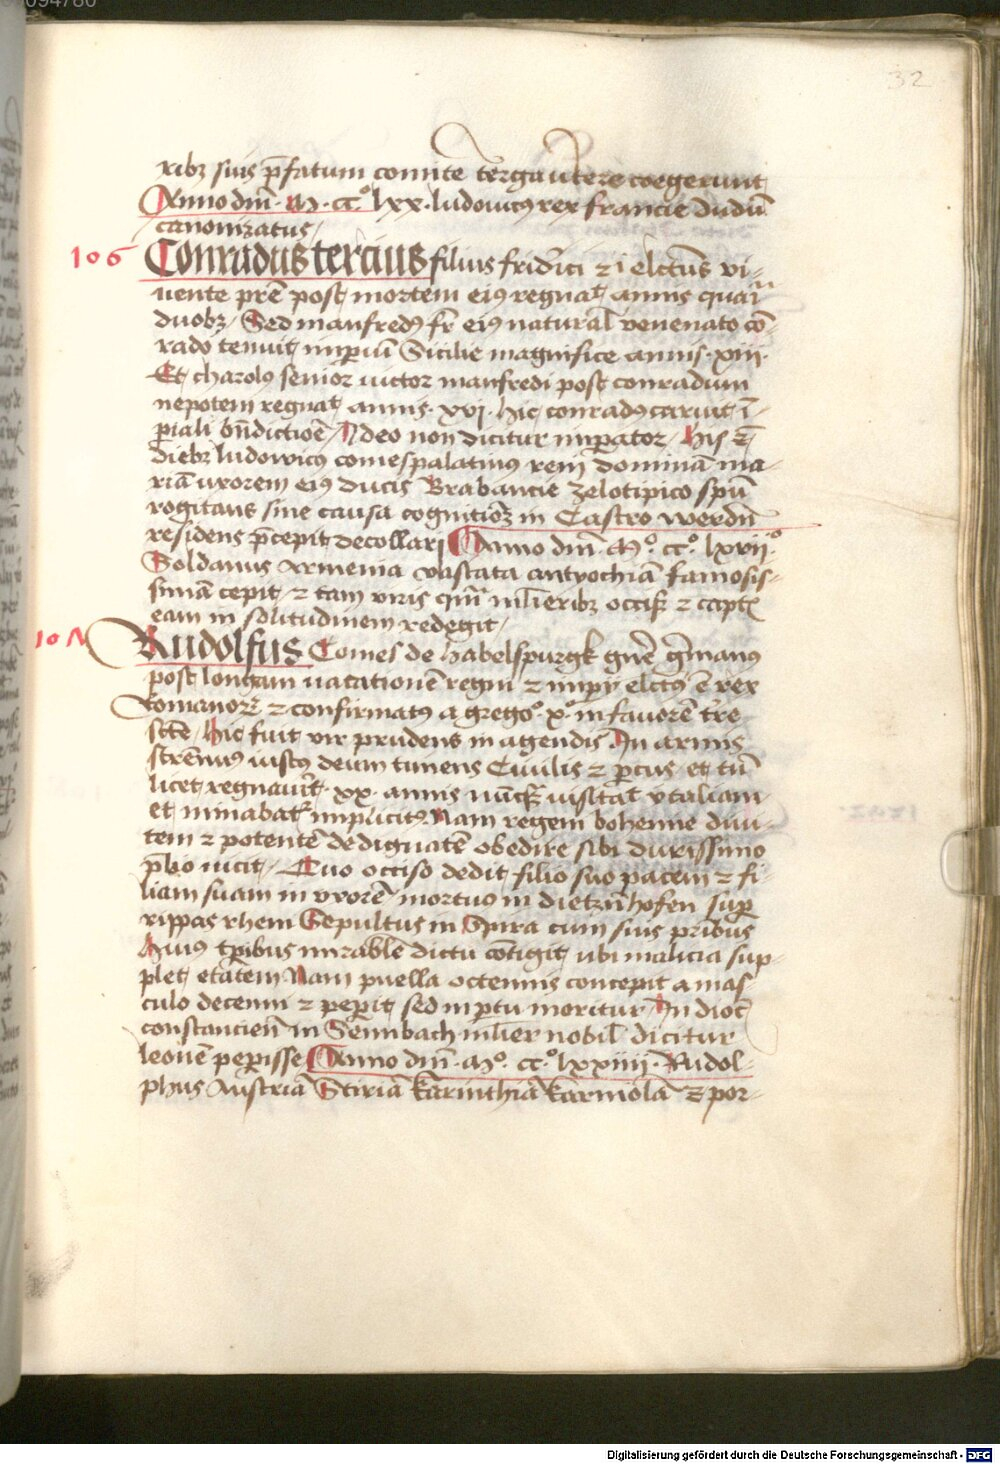 32
ribꝫ suis p̄fatum comitē terga v̓tere coegerunt
Anno dm̄ · M · cc° lxx · ludouicus rex francie dudū
canonizatus /
106 Conradus tercius filius frid̓ici ⁊ i elect̓us vi-
uente pr̄e post mortem eiꝰ regnat annis quatu
duobꝫ / Sed manfredꝰ fr̄ eiꝰ natural̓ venenato cō-
rado tenuit impiū Sicilie magnifice annis · xiii ·
Et charolꝰ senior victor manfredi post conradum
nepotem regnat annis · xvj · hic conradꝰ caruit ī-
p̱iali bn̄dictiōe / Ideo non dicitur imp̱ator / his ⁊
diebꝫ ludowicꝰ comes palatinꝰ reni dominā ma-
riā vxorem eiꝰ ducis Brabancie zelotipico sp̄u
rogitans sine causa cognitiōꝫ in Castro werdn̄
residens p̄cepit decollari Anno dm̄ · M° · cc° · lxvij°
Soldanus Armenia vastata antyochiā famosis-
simā cepit / ⁊ tam viris qm̄ ml̓ieribꝫ occiſ̓ ⁊ captꝭ
eam in solitudinem redegit /
107 Rudolfus Comes de habelspurgk gn̄e gͥmanꝰ
post longam vacationē regni ⁊ impij elctꝰ ē rex
Romanoꝝ ⁊ confirmatꝰ a grego° · x° · in fauorē tr̄e
sctē / hic fuit vir prudens in agendis · In armis
strēnuꝰ iustꝰ deum timens Ciuilis ⁊ p̱cus · et tn̄
licet regnauīt · xx · annis nūcꝙ̄ visitat ytaliam
et minabat̓ implicitꝰ Nam regem bohemie diui-
tem ⁊ potentē dedignatē obedire sibi durissimo
p̄lio vicit / Quo occiso dedit filio suo pacem ⁊ fi-
liam suam in vxorē · mortuꝰ in dietznhofen sup̱
rippas rheni Sepultus in Spira cum suis pribus
Huius tp̱ibus mirabile dictu cōtigit vbi malicia sup-
plet etatem Nam puella octennis concepit a mas-
culo decenni ⁊ pep̱it sed in p̱tu moritur / In dioc̓
constancien̄ in Sennbach ml̓ier nobil̓ dicitur
leonē pep̱isse Anno dm̄ · M° · cc° lxxiiii · Rudol-
phus Austriā Stiriā karinthiā karniolā ⁊ por-
Digitalisierung gefördert durch die Deutsche Forschungsgemeinschaft - DFG